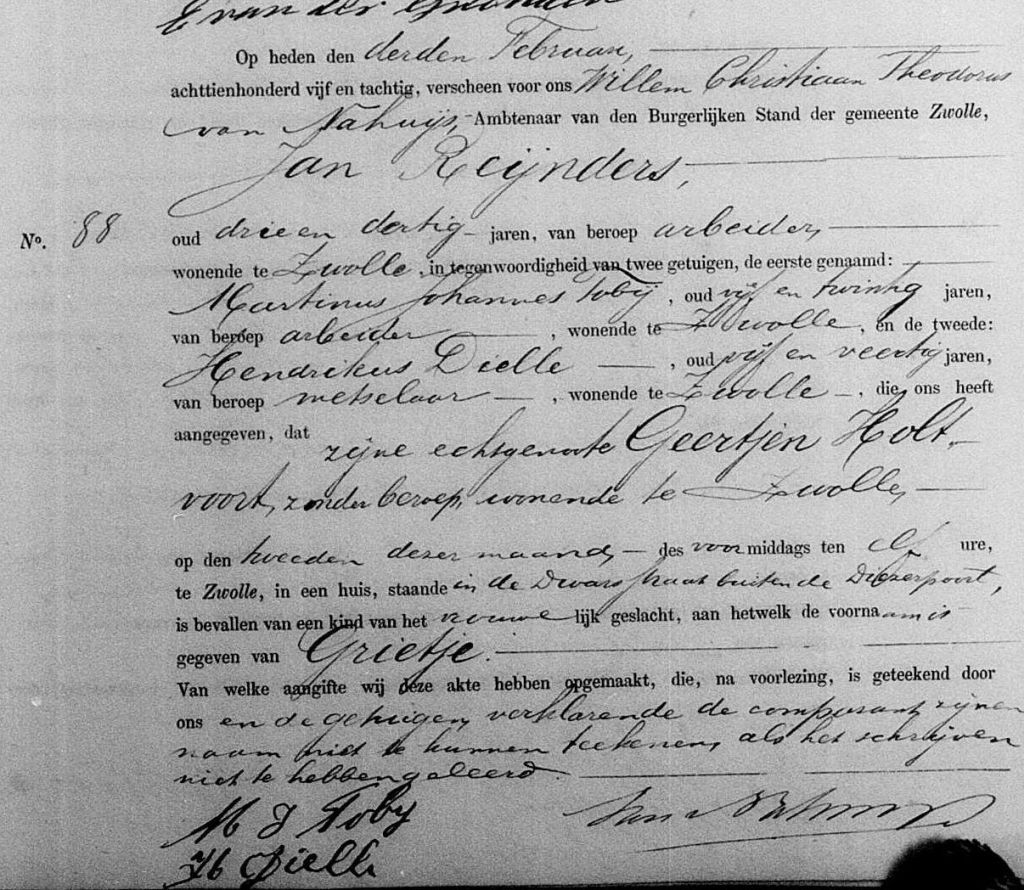 E van der
Op heden den derden Februari,
achttienhonderd vijf en tachtig, verscheen voor ons Willem Christiaan Theodorus
van Nahuijs, Ambtenaar van den Burgerlijken Stand der gemeente Zwolle,
Jan Reijnders,
No. 88
oud drie en dertig jaren, van beroep arbeider,
wonende te Zwolle, in tegenwoordigheid van twee getuigen, de eerste genaamd:
Martinus Johannes Tobij, oud vijf en twintig jaren,
van beroep arbeider, wonende te Zwolle, en de tweede:
Hendrikus Dielle, oud vijf en veertig jaren,
van beroep metselaar, wonende te Zwolle, die ons heeft
aangegeven, dat zijne echtgenoote Geertjen Holt-
voort, zonder beroep, wonende te Zwolle,
op den tweeden dezer maand, des voormiddags ten elf ure,
te Zwolle, in een huis, staande in de Dwarsstraat buiten de Diezerpoort,
is bevallen van een kind van het vrouwelijk geslacht, aan hetwelk de voornaam is
gegeven van Grietje.
Van welke aangifte wij deze akte hebben opgemaakt, die, na voorlezing, is geteekend door
ons en de getuigen, verklarende de comparant zijnen
naam niet te kunnen teekenen, als het schrijven
niet te hebben geleerd.
M J Toby
H Dielle